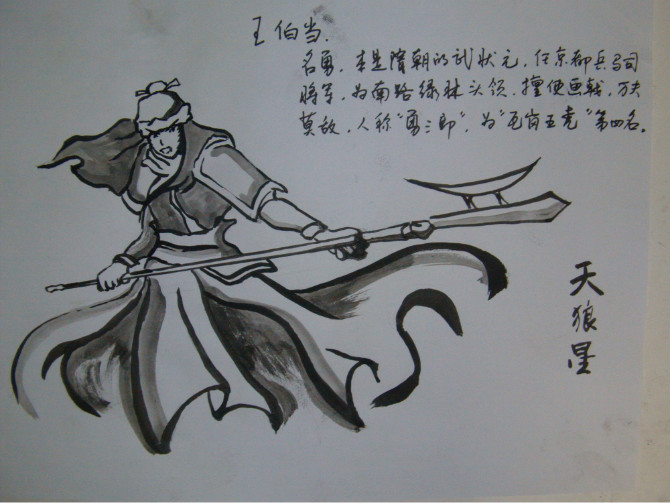 王伯当.
名勇，本是隋朝的武状元，任京都兵马司
将军，为南路绿林头领，擅使画戟，万夫
莫敌，人称"勇三郎"，为"瓦岗五虎"第四名。
天狼星